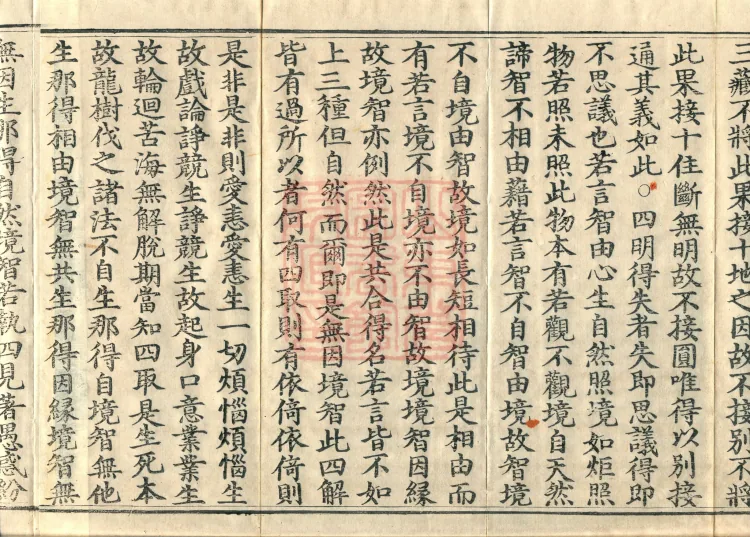 三藏不將此果接十地之因故不接別不將
此果接十住斷無明故不接圓唯得以別接
通其義如此○四明得失者失即思議得即
不思議也若言智由心生自然照境如炬照
物若照未照此物本有若觀不觀境自天然
諦智不相由藉若言智不自智由境故智境
不自境由智故境如長短相待此是相由而
有若言境不自境亦不由智故境境智因緣
故境智亦例然此是共合得名若言皆不如
上三種但自然而爾即是無因境智此四解
皆有過所以者何有四取則有依倚依倚則
是非是非則愛恚愛恚生一切煩惱煩惱生
故戲論諍競生諍競生故起身口意業業生
故輪迴苦海無解脫期當知四取是生死本
故龍樹伐之諸法不自生那得自境智無他
生那得相由境智無共生那得因緣境智無
無因生那得自然境智若執四見著愚惑紛